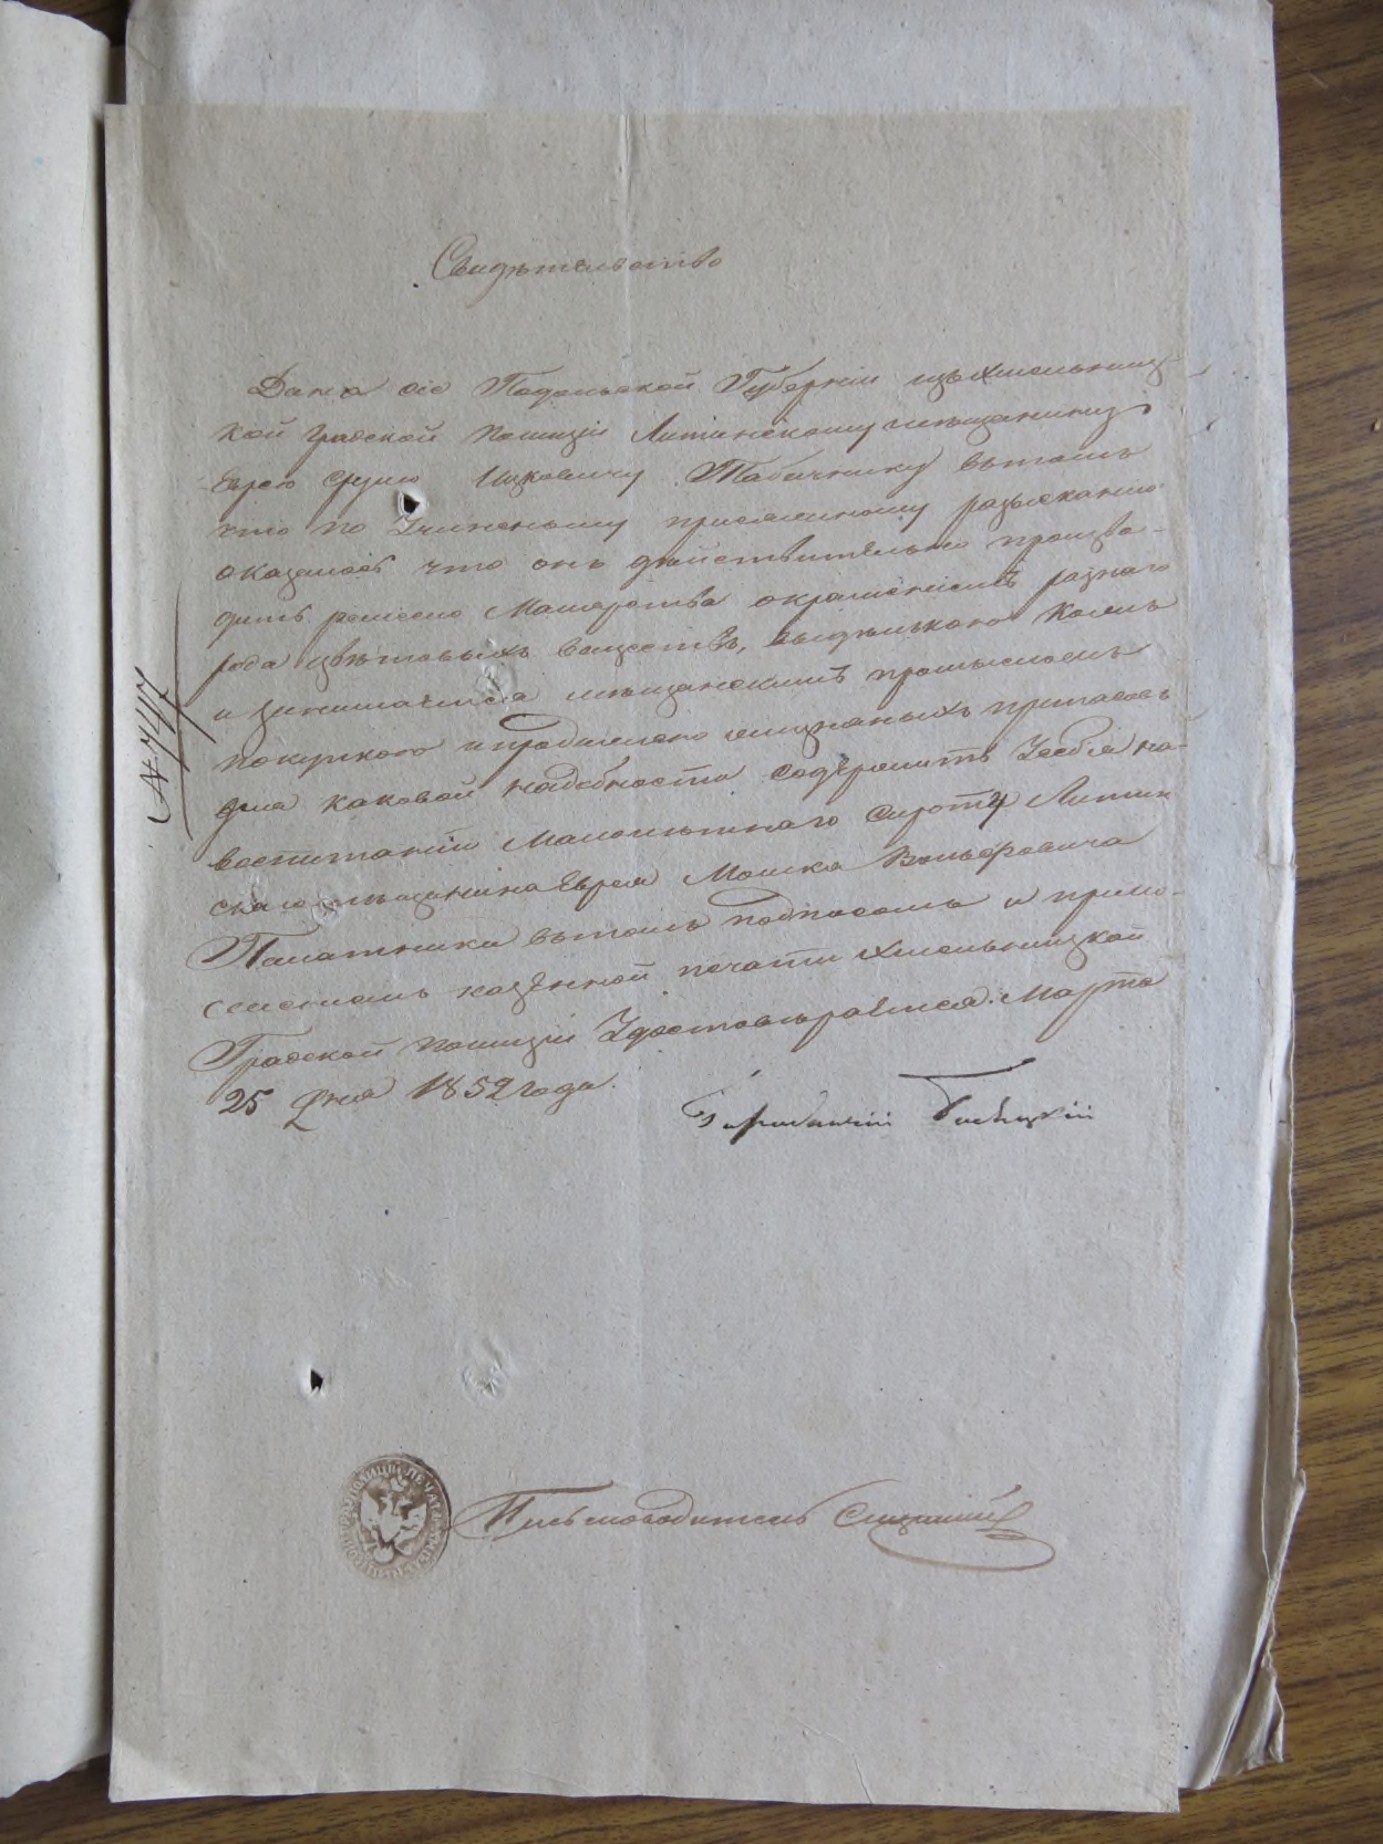 Свидѣтельство
Дано сіе Подольской Губерніи изъ Хмельниц-
кой Градской Полиціи Литинскому мѣщанину
Еврею Ицковичу Табачнику въ томъ
что по учиненному присяжному разысканію
оказалось что онъ дѣйствительно произво-
дитъ ремесло Мастерства окрашеніемъ разнаго
рода цвѣтовыхъ веществъ, выдѣлькою Кожъ
и занимается мѣщанскимъ промысломъ
покупкою и продажею припасовъ
для каковой надобности содержитъ у себя на
воспитаніи Малолѣтнаго сироту Литин
скаго мѣщанина Еврея Мошка Вольфовича
Палатника въ томъ подписомъ и прило-
женіемъ казенной печати Хмельницкой
Градской Полиціи удостовѣряется. Марта
25 дня 1852 года.
Городничій
№ 747
Письмоводитель